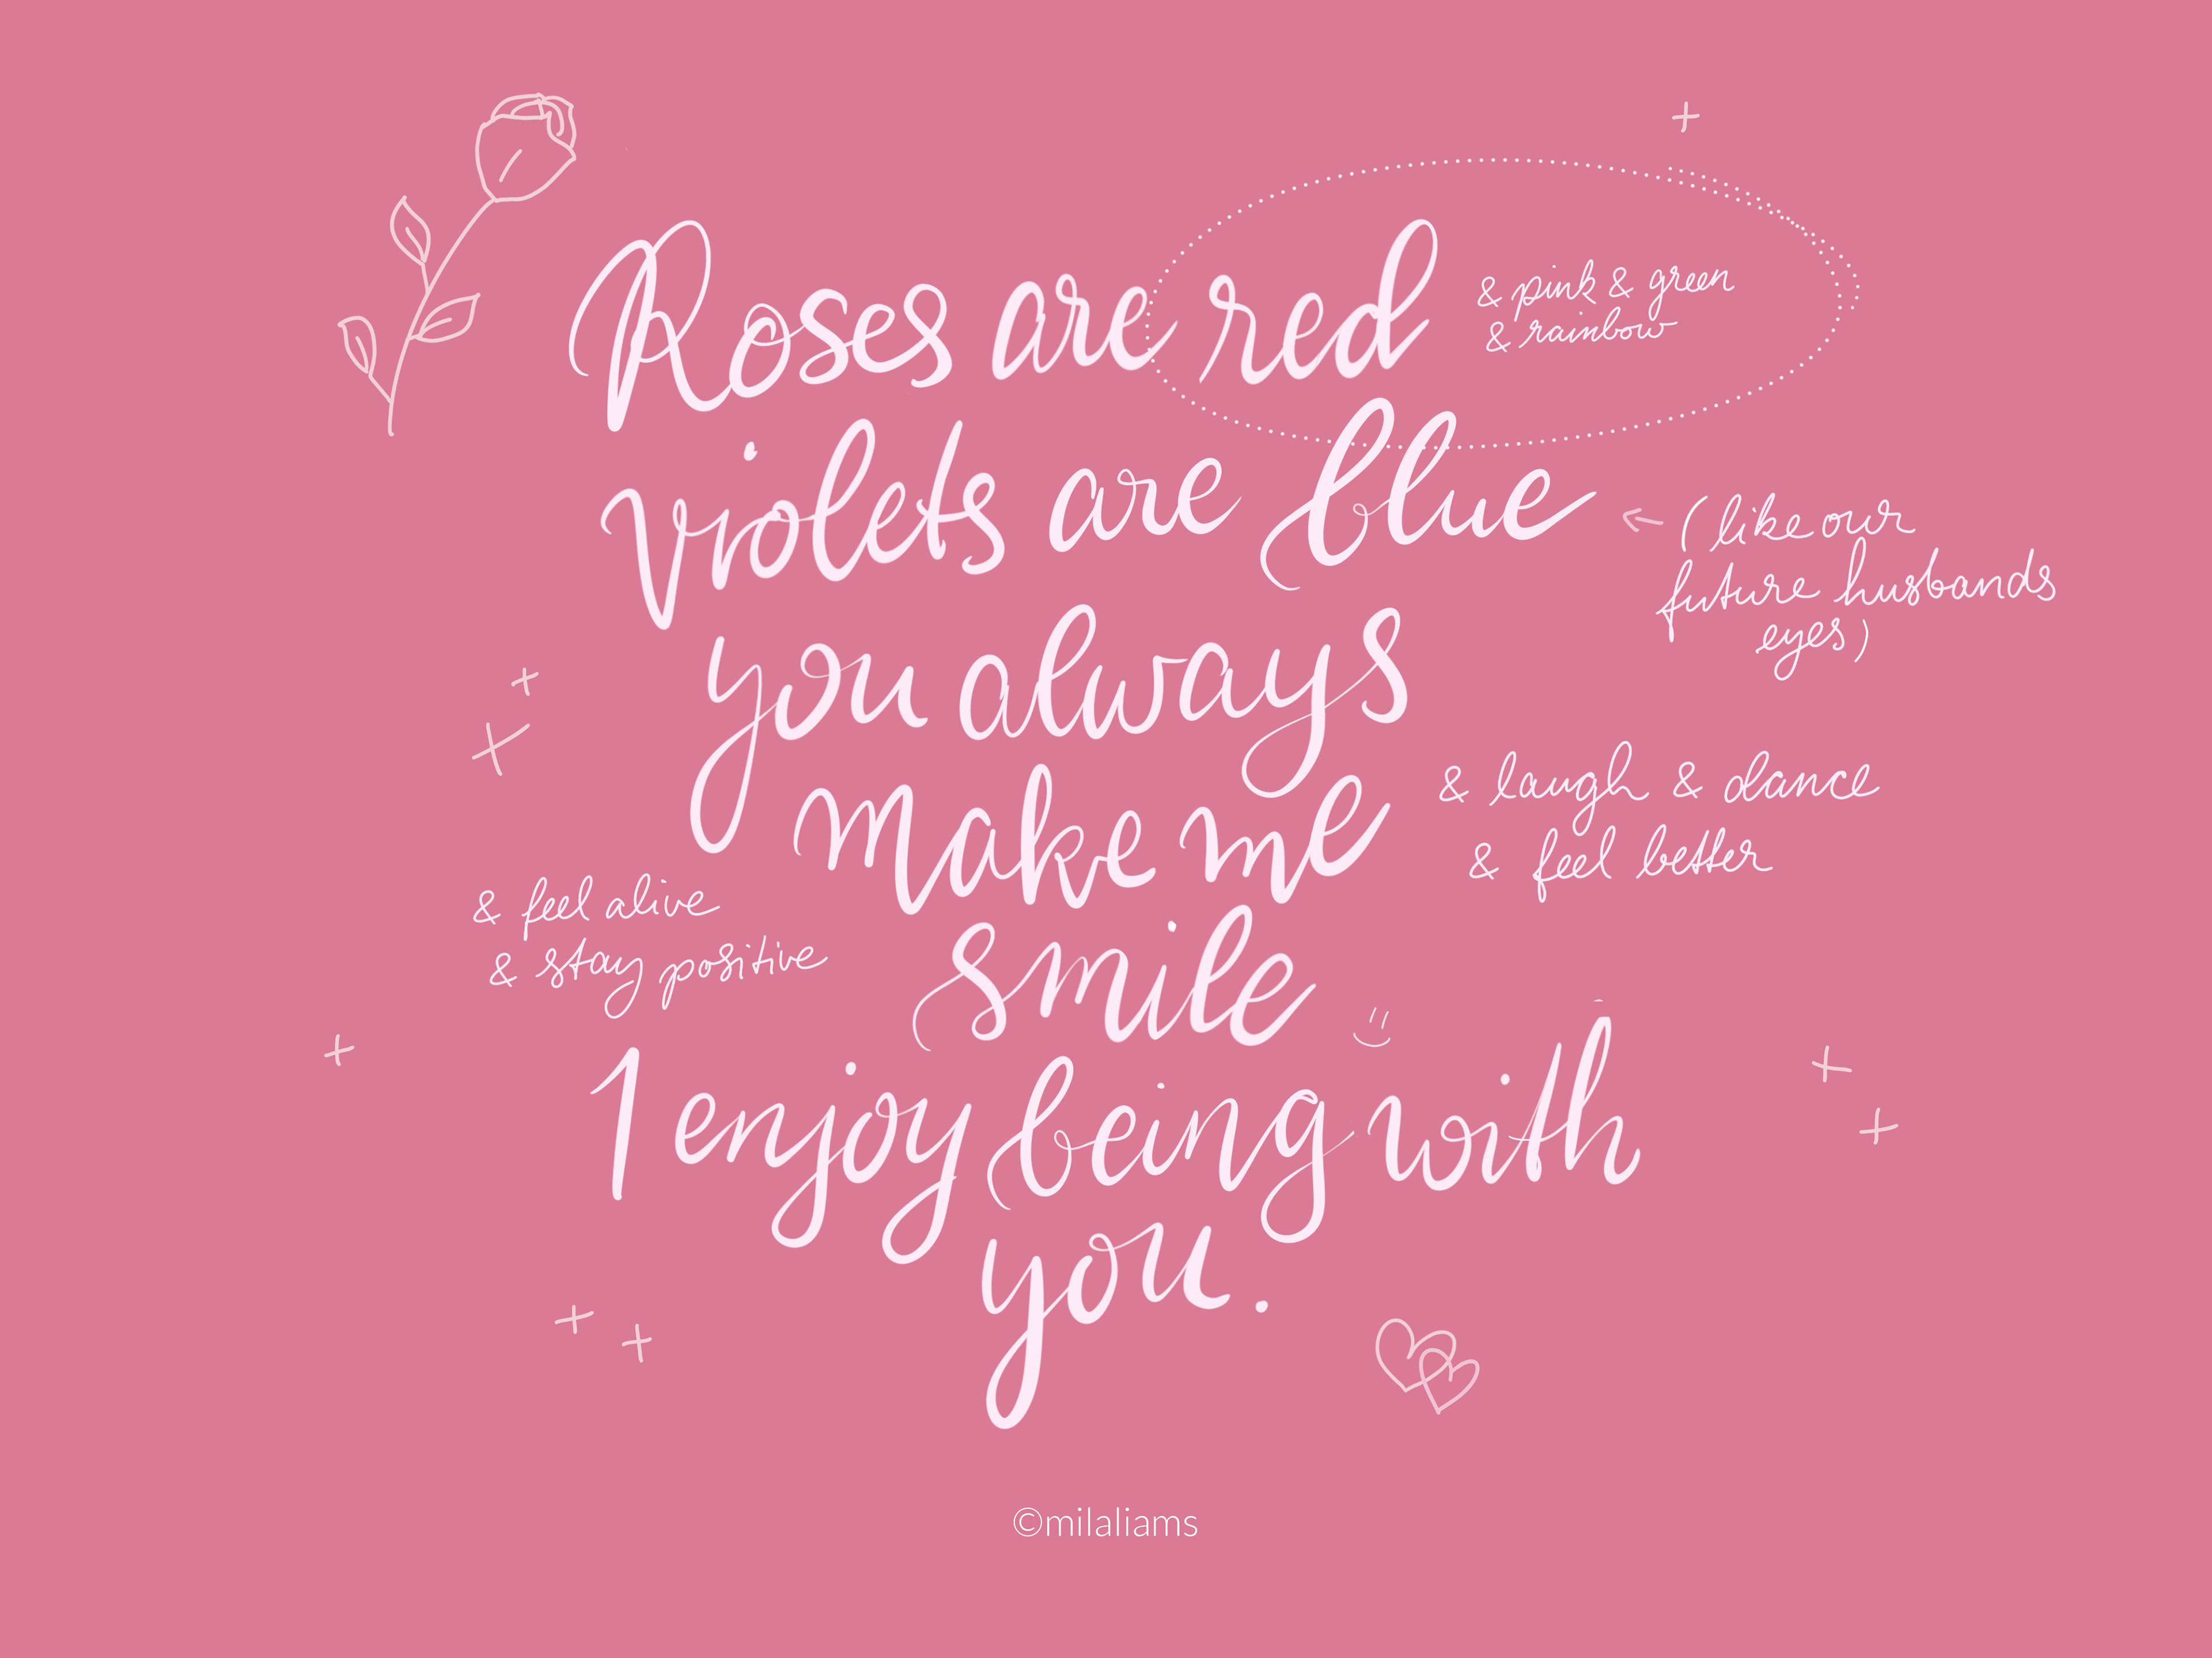 Roses are red
& pink & green
& rainbow
violets are blue
(like our
future husbands
eyes)
you always
make me
& laugh & dance
& feel better
& feel alive
& stay positive
smile
I enjoy being with
you.
©milaliams